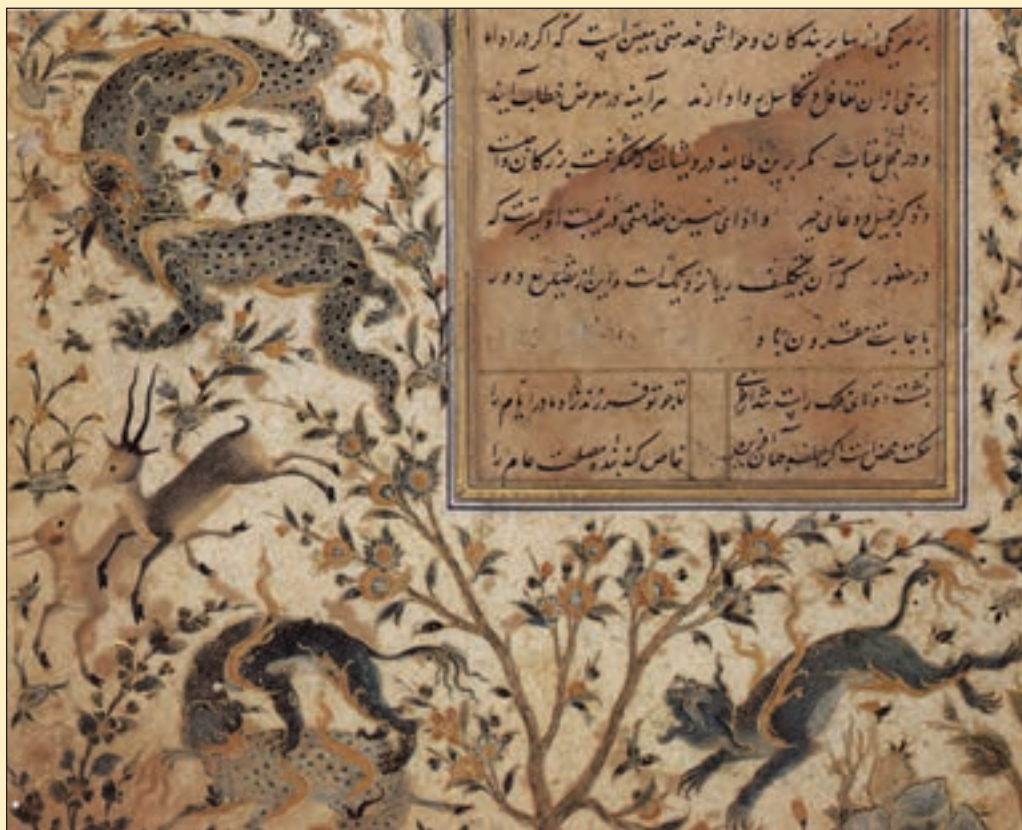 بر هر یکی از سایر بندگان و حواشی خدمتی معین است که اگر در ادا
برخی از آن تغافل و تکاسل روا دارند هرآینه در معرض خطاب آیند
و در محل عتاب مگر برین طایفه درویشان که شکر نعمت بزرگان واجبست
و ذکر جمیل و دعای خیر و ادای چنین خدمتی در غیبت اولیترست که
در حضور که آن بتکلف ریا نزدیکست و این از دور
باجابت مقرون باد
پشت دوتای فلک راست شد از خرمی تا چو تو فرزند زاد مادر ایام را
حکمت محضست اگر لطف جهان آفرین خاص کند بنده مصلحت عام را